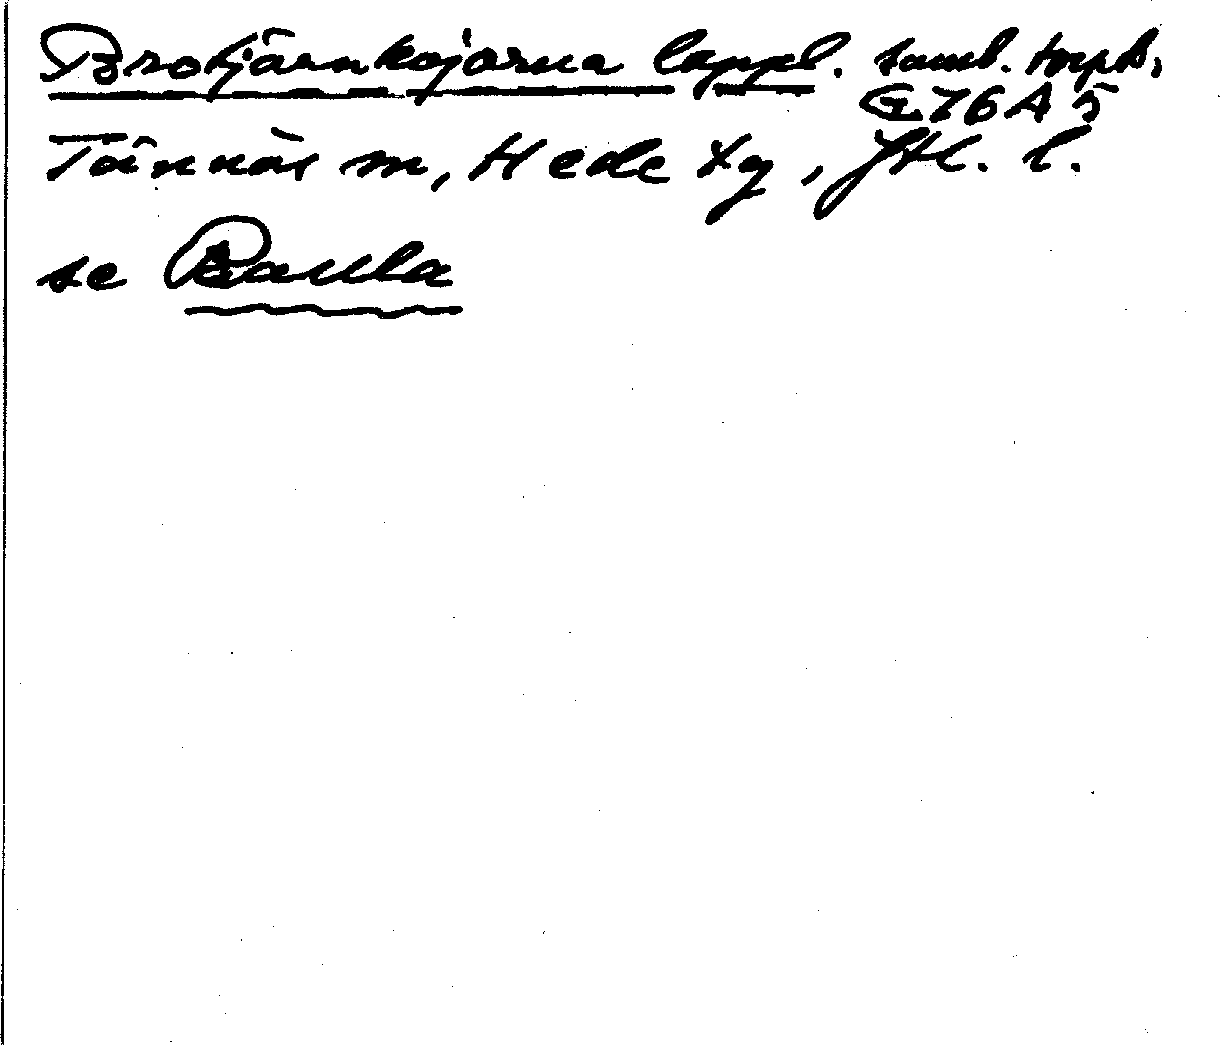 Brotjärnkojorna lappl. saml. torpb,
G.76 A 5
Tännäs sn, Hede tg, Jtl. l.
se Baulla